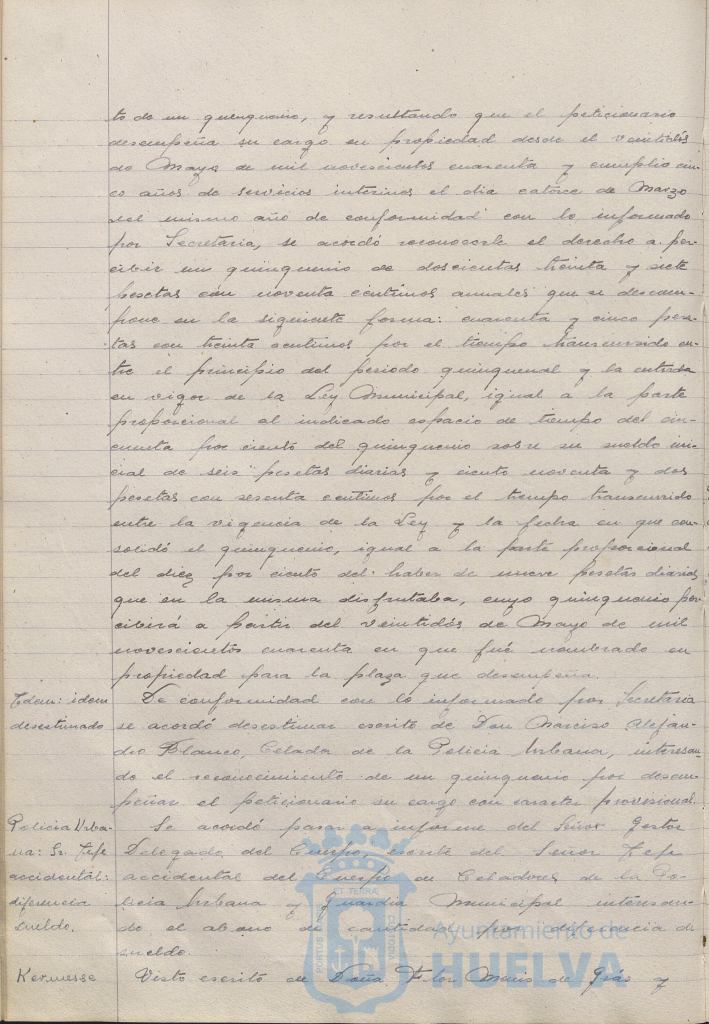 to de un quinquenio, y resultando que el peticionario
desempeña su cargo en propiedad desde el veintidós
de Mayo de mil novecientos cuarenta y cumplió cin-
co años de servicios interinos el dia catorce de Marzo
del mismo año de conformidad con lo informado
por Secretaria, se acordó reconocerle el derecho a per-
cibir un quinquenio de doscientas treinta y siete
pesetas con noventa centimos anuales que se descom-
pone en la siguiente forma: cuarenta y cinco pese-
tas con treinta centimos por el tiempo transcurrido en-
tre el principio del periodo quinquenal y la entrada
en vigor de la Ley Municipal, igual a la parte
proporcional al indicado espacio de tiempo del cin-
cuenta por ciento del quinquenio sobre su sueldo ini-
cial de seis pesetas diarias y ciento noventa y dos
pesetas con sesenta centimos por el tiempo transcurrido
entre la vigencia de la Ley y la fecha en que con-
solidó el quinquenio, igual a la parte proporcional
del diez por ciento del haber de nueve pesetas diarias
que en la misma disfrutaba, cuyo quinquenio per-
cibirá a partir del veintidós de Mayo de mil
novecientos cuarenta en que fué nombrado en
propiedad para la plaza que desempeña.
Idem: idem
desestimado
De conformidad con lo informado por Secretaria
se acordó desestimar escrito de Don Narciso Alejan-
dro Blanco, Celador de la Policia Urbana, interesan-
do el reconocimiento de un quinquenio por desem-
peñar el peticionario su cargo con caracter provisional.
Policia Urba-
na: Sr. Jefe
accidental:
diferencia
sueldo.
Se acordó pase a informe del Señor Gestor
Delegado del Cuerpo, escrito del Señor Jefe
accidental del Cuerpo de Celadores de la Po-
licia Urbana y Guardia Municipal interesan-
do el abono de cantidad por diferencia de
sueldo.
Kermesse
Visto escrito de Doña Flor de y
PORTUS
ET TERRA
CUSTODIA
Ayuntamiento de
HUELVA